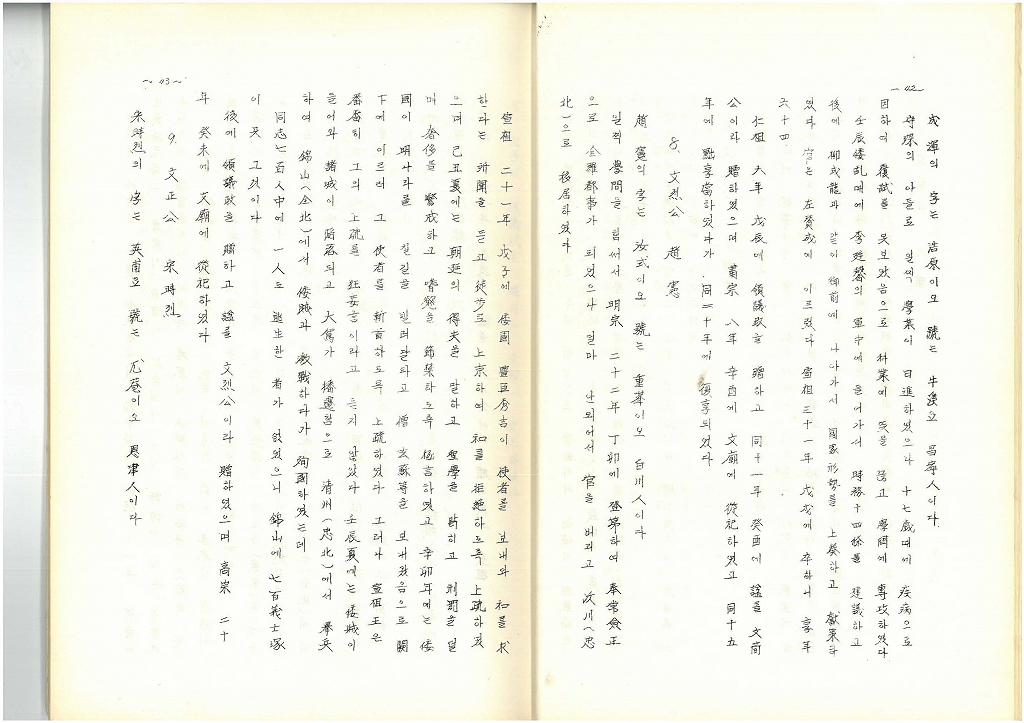 ~42~
成渾의 字는 浩原이오 號는 牛溪요 昌寧人이다
守琛의 아들로 일찍 學業이 日進하였으나 十七歲때에 疾病으로
因하여 覆試를 못보았음으로 科業에 뜻을 끊고 學問에 專攻하였다
壬辰倭乱때에 李廷馣의 軍中에 들어가서 時務十四條를 建議하고
後에 柳成龍과 같이 御前에 나아가서 國家形勢를 上奏하고 獻策하
였다 官은 左贊成에 이르렀다 宣祖三十一年 戊戌에 卒하니 享年
六十四
仁祖 六年 戊辰에 領議政을 贈하고 同十一年 癸酉에 諡를 文簡
公이라 贈하였으며 肅宗 八年 辛酉에 文廟에 從祀하였고 同十五
年에 黜享當하였다가 同二十年에 復享되었다
8. 文烈公 趙憲
趙憲의 字는 汝式이오 號는 重峯이오 白川人이다
일찍 學問을 힘써서 明宗 二十二年 丁卯에 登第하여 奉常僉正
으로 全羅都事가 되었으나 얼마 안되어서 官을 버리고 沃川(忠
北)으로 移居하였다
~43~
宣祖 二十一年 戊子에 倭國 豊臣秀吉이 使者를 보내와 和를 求
한다는 所聞을 듣고 徒步로 上京하여 和를 拒絶하도록 上疏하였
으며 己丑夏에는 朝廷의 得失을 말하고 聖學을 밝히고 刑罰을 덜
며 奢侈를 警戒하고 嗜慾을 節禁하도록 極言하였고 辛卯年에는 倭
國이 明나라를 칠길을 빌려달라고 僧 玄蘇等을 보내왔음으로 闕
下에 이르러 그 使者를 斬首하도록 上疏하였다 그러나 宣祖王은
番番히 그의 上疏를 狂妄름이라고 듣지 않았다 壬辰夏에는 倭賊이
들어와 諸城이 陷落되고 大駕가 播遷함으로 清州(忠北)에서 擧兵
하여 錦山(全北)에서 倭賊과 激戰하다가 殉國하였는데
同志七百人中에 一人도 逃生한 者가 없었으니 錦山에 七百義士塚
이 곳 그것이다
後에 領議政을 贈하고 諡를 文烈公이라 贈하였으며 高宗 二十
年 癸未에 文廟에 從祀하였다
9. 文正公 宋時烈
宋時烈의 字는 英甫요 號는 尤菴이오 恩津人이다